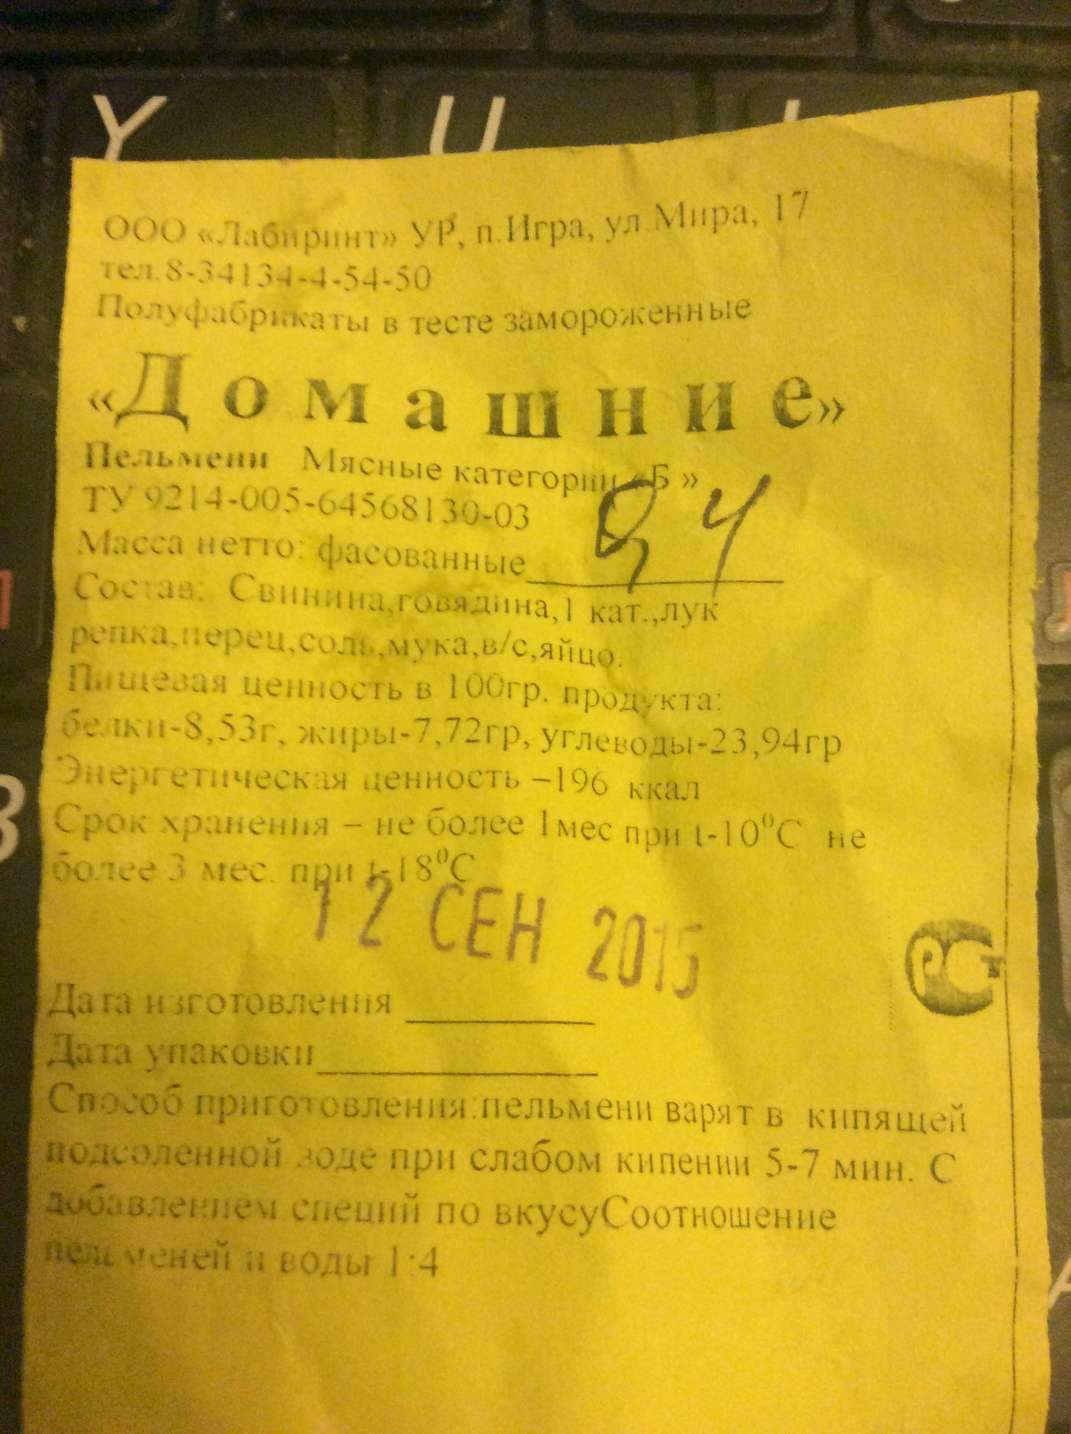 Y U
ООО «Лабиринт» УР, п.Игра, ул Мира, 17
тел.8-34134-4-54-50
Полуфабрикаты в тесте замороженные
«Домашние»
Пельмени Мясные категории «Б »
ТУ 9214-005-64568130-03
Масса нетто: фасованные
Состав: Свинина,говядина,1 кат.,лук
репка,перец,соль,мука,в/с,яйцо.
Пищевая ценность в 100гр. продукта:
белки-8,53г, жиры-7,72гр, углеводы-23,94гр
Энергетическая ценность –196 ккал
Срок хранения – не более 1мес при t-10⁰С не
более 3 мес. при t-18⁰С
12 СЕН 2015
Дата изготовления
Дата упаковки
Способ приготовления:пельмени варят в кипящей
подсоленной воде при слабом кипении 5-7 мин. С
добавлением специй по вкусуСоотношение
пельменей и воды 1:4